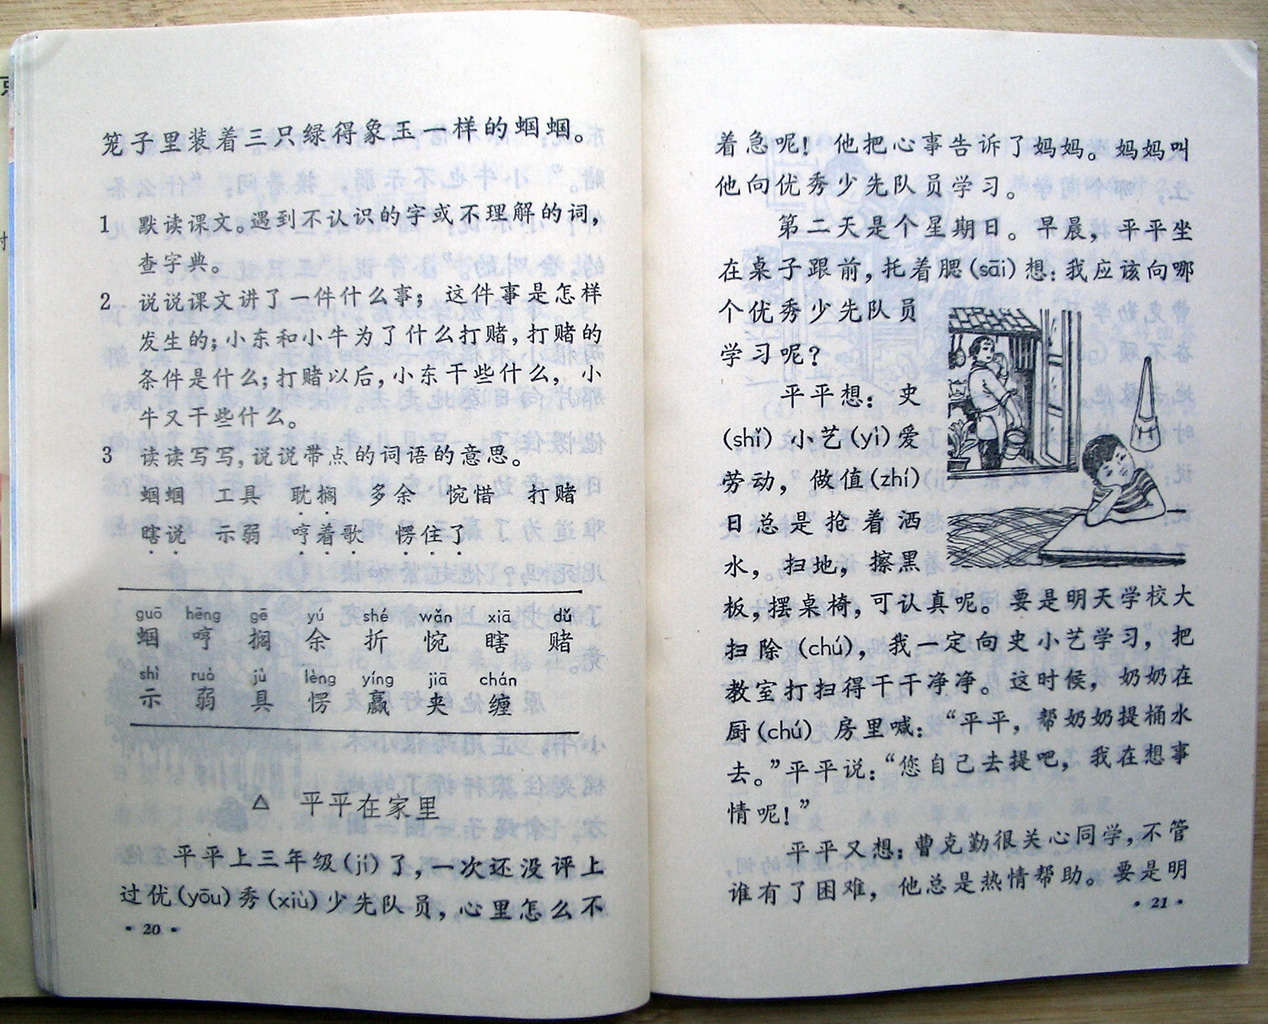 笼子里装着三只绿得象玉一样的蝈蝈。
1 默读课文。遇到不认识的字或不理解的词，
查字典。
2 说说课文讲了一件什么事；这件事是怎样
发生的；小东和小牛为了什么打赌，打赌的
条件是什么；打赌以后，小东干些什么，小
牛又干些什么。
3 读读写写，说说带点的词语的意思。
蝈蝈 工具 耽搁 多余 惋惜 打赌
瞎说 示弱 哼着歌 愣住了
guō hēng gē yú shé wǎn xiā dǔ
蝈 哼 搁 余 折 惋 瞎 赌
shì ruò jù lèng yíng jiā chán
示 弱 具 愣 赢 夹 缠
△ 平平在家里
平平上三年级(jí)了，一次还没评上
过优(yōu)秀(xiù)少先队员，心里怎么不
·20·
着急呢！他把心事告诉了妈妈。妈妈叫
他向优秀少先队员学习。
第二天是个星期日。早晨，平平坐
在桌子跟前，托着腮(sāi)想：我应该向哪
个优秀少先队员
学习呢？
平平想：史
(shǐ)小艺(yì)爱
劳动，做值(zhí)
日总是抢着洒
水，扫地，擦黑
板，摆桌椅，可认真呢。要是明天学校大
扫除(chú)，我一定向史小艺学习，把
教室打扫得干干净净。这时候，奶奶在
厨(chú)房里喊：“平平，帮奶奶提桶水
去。”平平说：“您自己去提吧，我在想事
情呢！”
平平又想：曹克勤很关心同学，不管
谁有了困难，他总是热情帮助。要是明
·21·